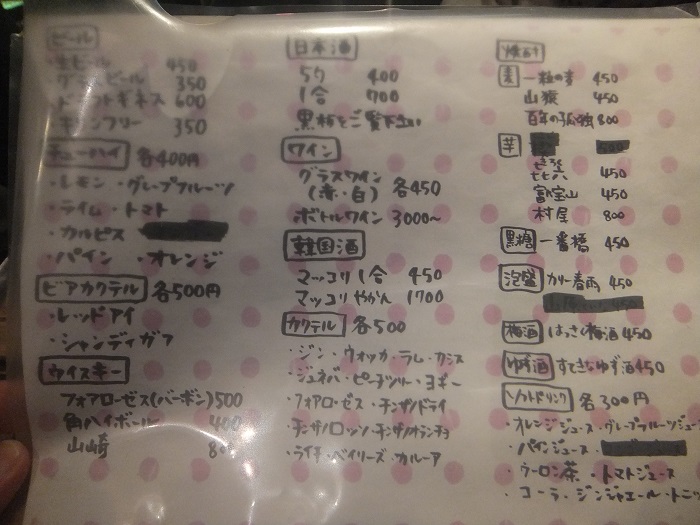 ビール
生ビール 450
グラスビール 350
ドラフトギネス 600
キリンフリー 350
チューハイ 各400円
・レモン ・グレープフルーツ
・ライム ・トマト
・カルピス
・パイン ・オレンジ
ビアカクテル 各500円
・レッドアイ
・シャンディガフ
ウイスキー
フォアローゼス(バーボン)500
角ハイボール 400
山崎
日本酒
5勺 400
1合 700
黒板をご覧下さい
ワイン
グラスワイン
(赤・白) 各450
ボトルワイン 3000~
韓国酒
マッコリ1合 450
マッコリやかん 1700
カクテル 各500
・ジン・ウォッカ・ラム・カシス
・ジュネバ・ピーチツリー・ヨギー
・フォアローゼス・チンザノドライ
・チンザノロッソ・チンザノオランチョ
・ライチ・ベイリーズ・カルーア
焼酎
麦 一粒の麦 450
山猿 450
百年の孤独 800
芋
450
富乃宝山 450
村尾 800
黒糖 一番橋 450
泡盛 カリー春雨 450
梅酒 はっさく梅酒 450
ゆず酒 すてきなゆず酒 450
ソフトドリンク 各300円
・オレンジジュース・グレープフルーツジュー
・パインジュース・
・ウーロン茶 ・トマトジュース
・コーラ・ジンジャエール・トニッ